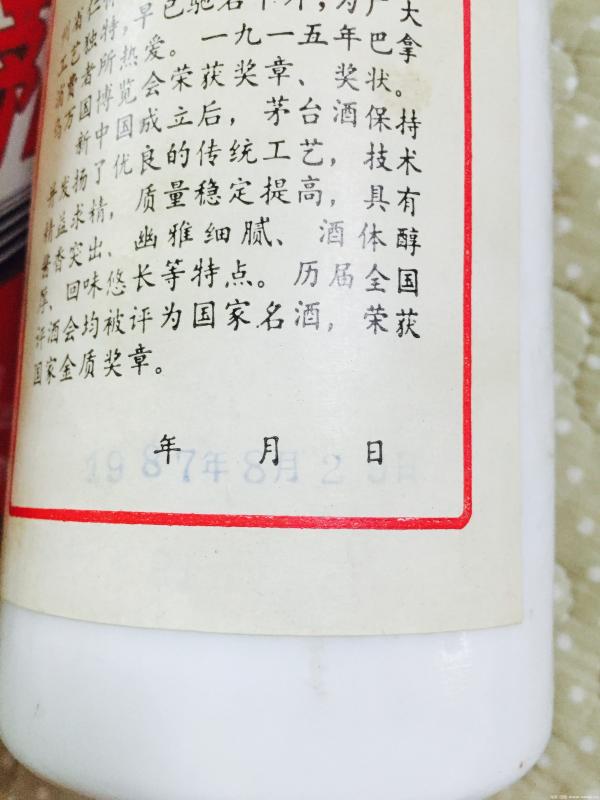 工艺独特，早已驰名中外，为广大
消费者所热爱。一九一五年巴拿
马万国博览会荣获奖章、奖状。
新中国成立后，茅台酒保持
并发扬了优良的传统工艺，技术
精益求精，质量稳定提高，具有
酱香突出、幽雅细腻、酒体醇
厚、回味悠长等特点。历届全国
评酒会均被评为国家名酒，荣获
国家金质奖章。
年 月 日
1987年8月2日